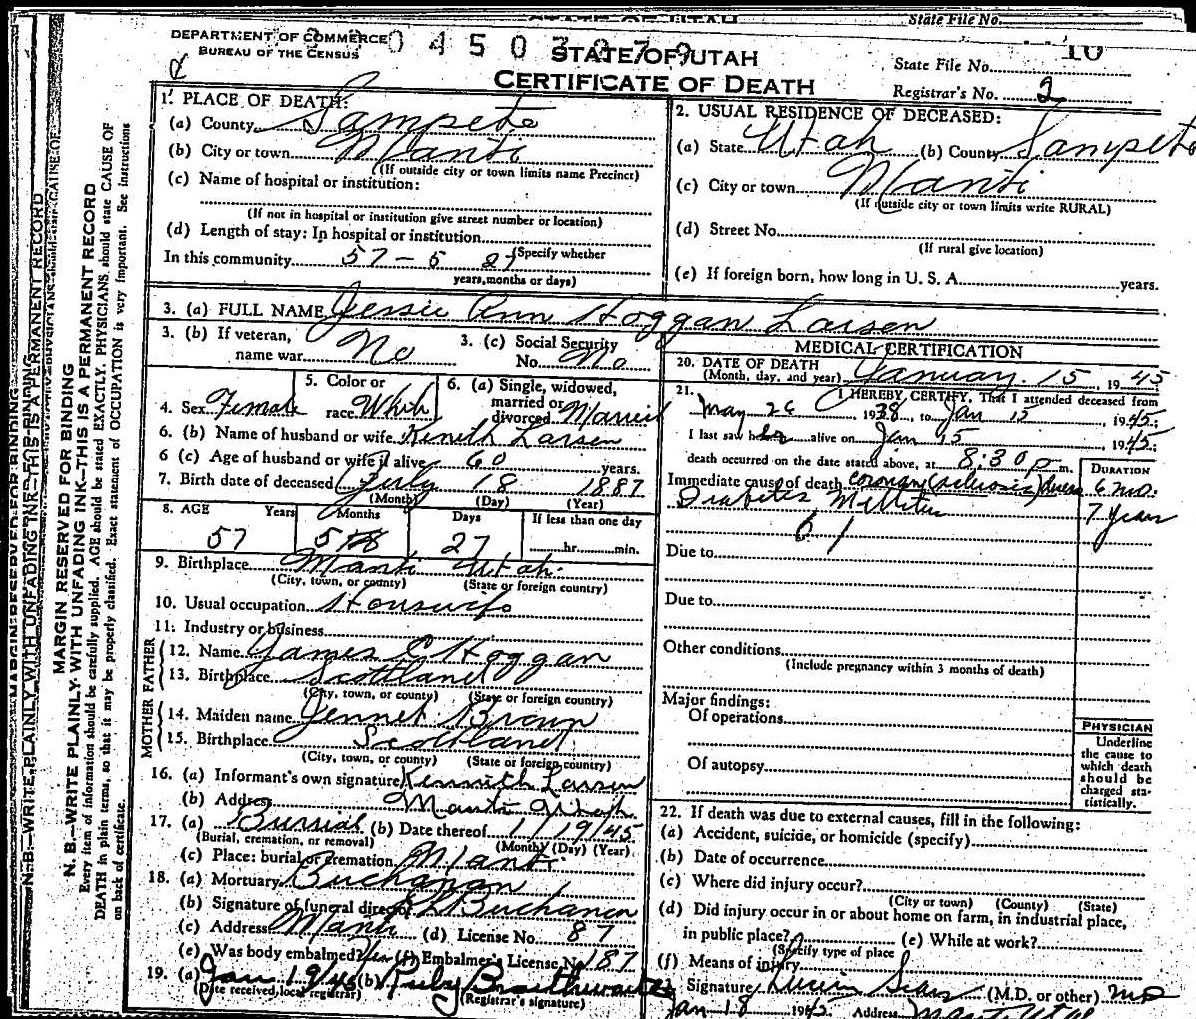 STATE OF UTAH
State File No.
DEPARTMENT OF COMMERCE
BUREAU OF THE CENSUS
0 4 5 0 3 9 7 9
STATE OF UTAH
CERTIFICATE OF DEATH
State File No. 10
Registrar's No. 2
1. PLACE OF DEATH:
(a) County Sampete
(b) City or town Manti
(If outside city or town limits name Precinct)
(c) Name of hospital or institution:
(If not in hospital or institution give street number or location)
(d) Length of stay: In hospital or institution
(Specify whether
In this community 57 - 5 27
years, months or days)
2. USUAL RESIDENCE OF DECEASED:
(a) State Utah (b) County Sampete
(c) City or town Manti
(If outside city or town limits write RURAL)
(d) Street No.
(If rural give location)
(e) If foreign born, how long in U. S. A. years.
3. (a) FULL NAME Jessie Ann Hoggan Larsen
3. (b) If veteran,
name war No
3. (c) Social Security
No. No
4. Sex Female
5. Color or
race White
6. (a) Single, widowed,
married or
divorced Married
6. (b) Name of husband or wife Kenneth Larsen
6 (c) Age of husband or wife if alive 60 years.
7. Birth date of deceased July 18 1887
(Month) (Day) (Year)
8. AGE Years Months Days If less than one day
57 5 27 hr. min.
9. Birthplace Manti Utah.
(City, town, or county) (State or foreign country)
10. Usual occupation Housewife
11: Industry or business
FATHER
12. Name James C Hoggan
13. Birthplace Scottland
(City, town, or county) (State or foreign country)
MOTHER
14. Maiden name Jennet Brown
15. Birthplace Scottland
(City, town, or county) (State or foreign country)
16. (a) Informant's own signature Kenneth Larsen
(b) Address Manti Utah.
17. (a) Burrial (b) Date thereof 1/19/45
(Burial, cremation, or removal) (Month) (Day) (Year)
(c) Place: burial or cremation Manti
18. (a) Mortuary Buchanan
(b) Signature of funeral director Buchanan
(c) Address Manti (d) License No. 87
(e) Was body embalmed? Yes (f) Embalmer's License No. 187
19. (a) Jan 19/45 (b) Ruby Braithwaite
(Date received local registrar) (Registrar's signature)
MEDICAL CERTIFICATION
20. DATE OF DEATH
(Month, day, and year) January 15, 1945
21. I HEREBY CERTIFY, That I attended deceased from
May 26, 1938, to Jan 15, 1945;
I last saw her alive on Jan 15, 1945;
death occurred on the date stated above, at 8:30 p. m.
DURATION
Immediate cause of death coronary sclerosis 6 mo.
Diabetes Mellitus 7 years
61
Due to
Due to
Other conditions
(Include pregnancy within 3 months of death)
Major findings:
Of operations
Of autopsy
PHYSICIAN
Underline
the cause to
which death
should be
charged sta-
tistically.
22. If death was due to external causes, fill in the following:
(a) Accident, suicide, or homicide (specify)
(b) Date of occurrence
(c) Where did injury occur?
(City or town) (County) (State)
(d) Did injury occur in or about home on farm, in industrial place,
in public place? (e) While at work?
(Specify type of place
(f) Means of injury
Signature Sears (M.D. or other) MD
Jan 18 1945 Address Manti Utah
MARGIN RESERVED FOR BINDING
N. B.—WRITE PLAINLY WITH UNFADING INK—THIS IS A PERMANENT RECORD
Every item of information should be carefully supplied. AGE should be stated EXACTLY. PHYSICIANS should state CAUSE OF
DEATH in plain terms, so that it may be properly classified. Exact statement of OCCUPATION is very important. See instructions
on back of certificate.